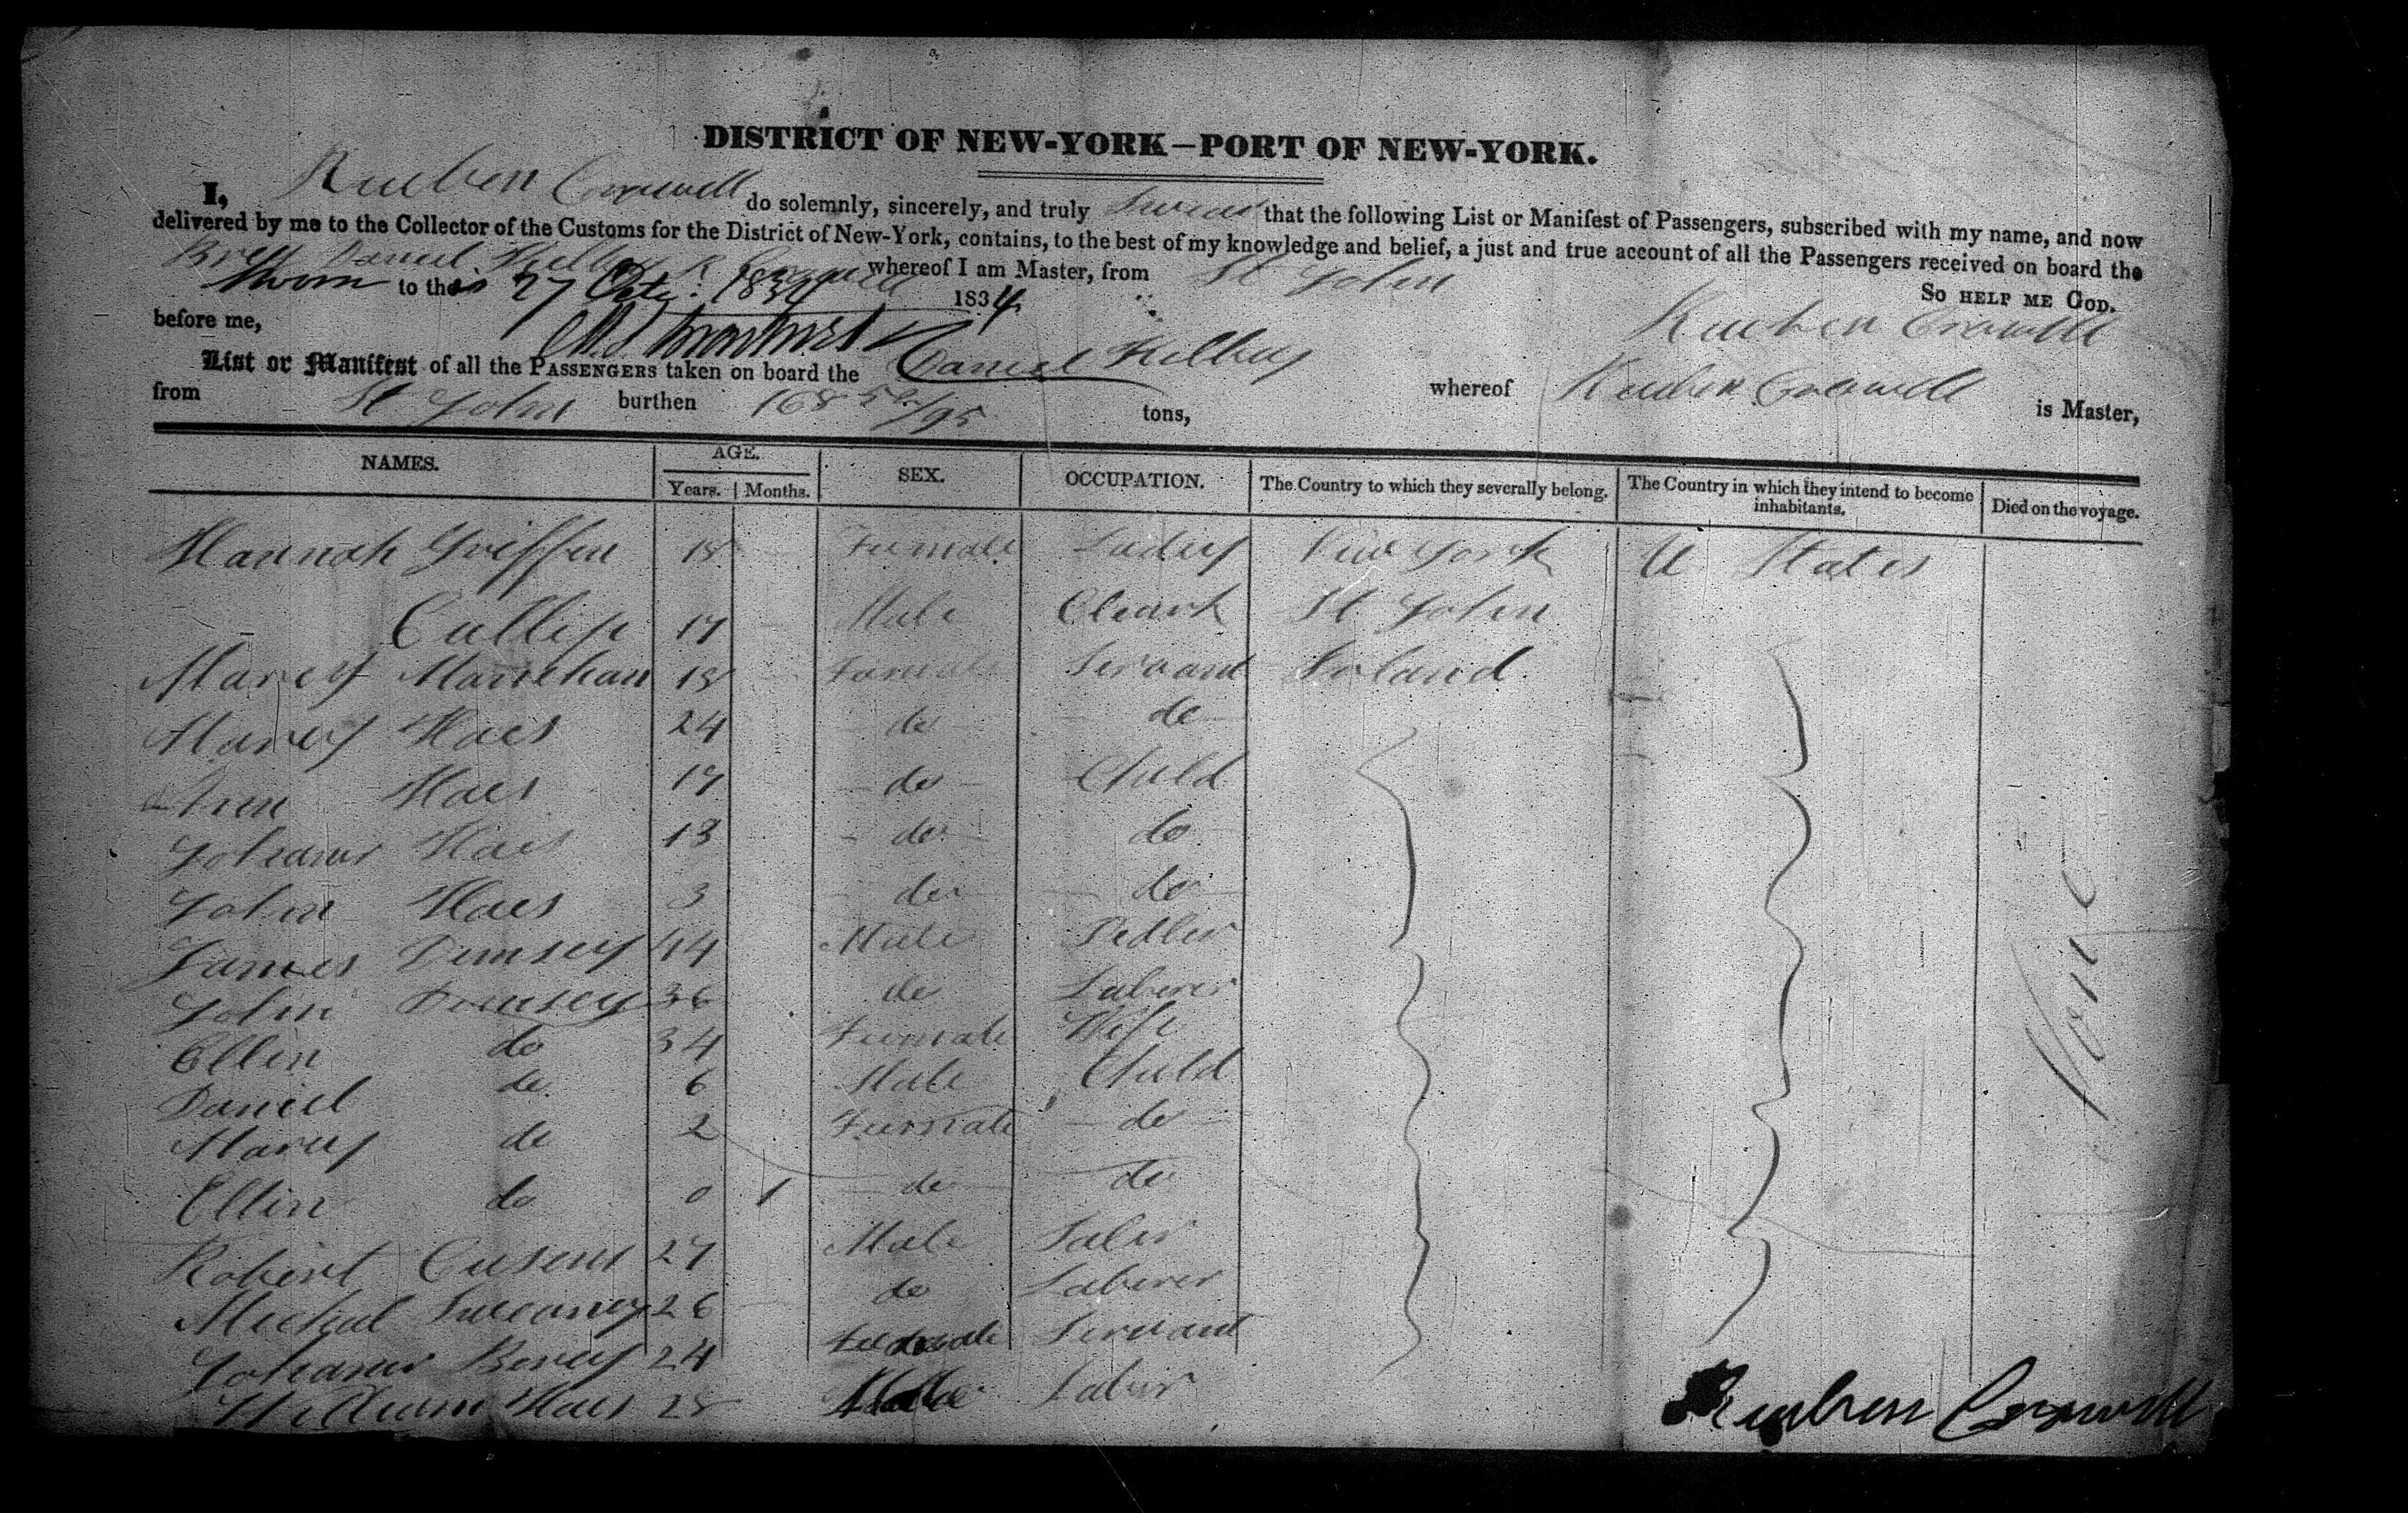 DISTRICT OF NEW-YORK—PORT OF NEW-YORK.
I, Rueben Crowell do solemnly, sincerely, and truly Swear that the following List or Manifest of Passengers, subscribed with my name, and now
delivered by me to the Collector of the Customs for the District of New-York, contains, to the best of my knowledge and belief, a just and true account of all the Passengers received on board the
Daniel Kelley whereof I am Master, from St John
Sworn to this 27 1834 1834 SO HELP ME GOD.
before me, Rueben Crowell
List or Manifest of all the PASSENGERS taken on board the Daniel Kelley whereof Rueben Crowell is Master,
from St John burthen 168 /95 tons,
NAMES. AGE. Years. Months. SEX. OCCUPATION. The Country to which they severally belong. The Country in which they intend to become inhabitants. Died on the voyage.
Hannah Griffen 18 Female Ladey New York U States
Cullip 17 Male Cleark St John
Marey 18 Female Servant Irland
Marey Haes 24 do do
Ann Haes 17 do Child
Johanar Haes 13 do do
John Haes 3 do do
James Demsey 44 Male Pedler
John Demsey 36 do Laberer
Ellin do 34 Female Wife
Daniel do 6 Male Child
Marey do 2 Female do
Ellin do 0 1 do do
Robert 27 Male
Micheal Sweaney 26 do Laberer
Johanar 24 Female Servant
William Haes 28 Male
None
Reuben Crowell